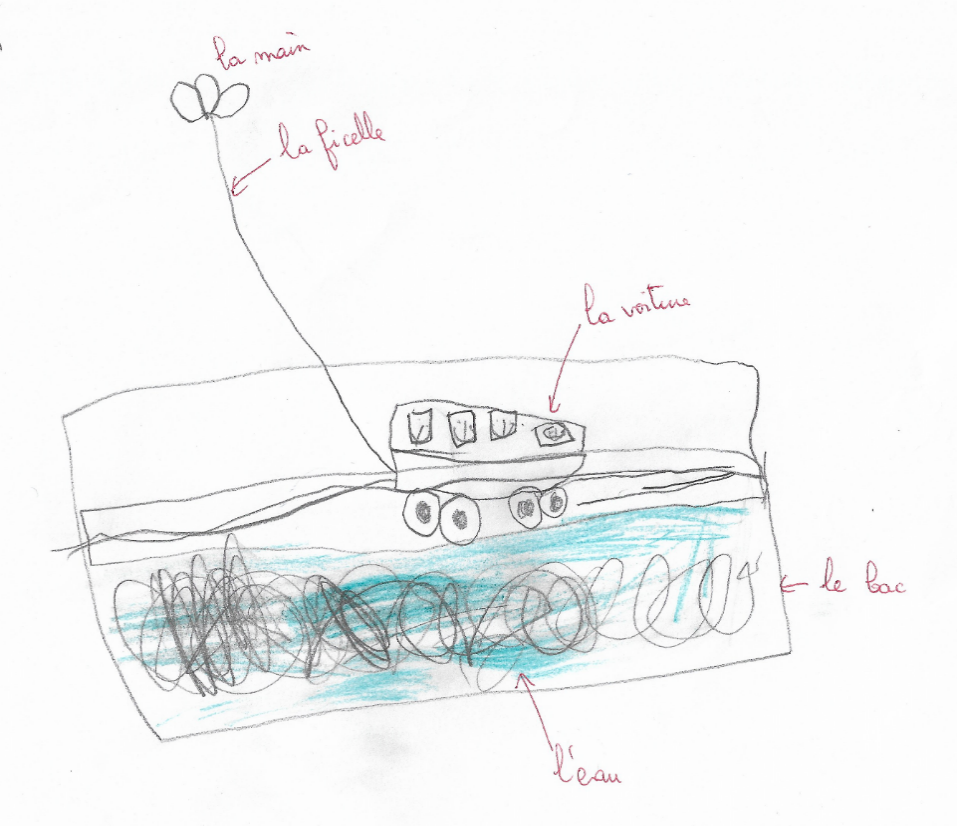 la main
la ficelle
la voiture
le bac
l'eau